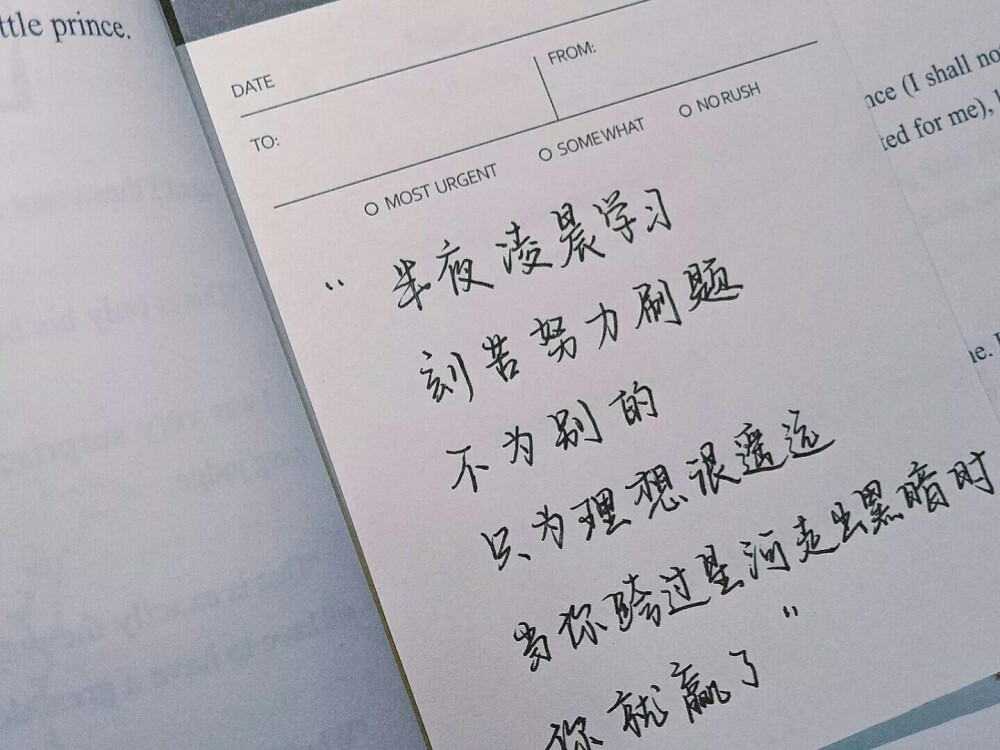 ttle prince.
DATE
FROM:
TO:
MOST URGENT
SOMEWHAT
NO RUSH
nce (I shall no
ted for me),
"半夜凌晨学习
刻苦努力刷题
不为别的
只为理想很遥远
当你跨过星河走出黑暗时
你就赢了"